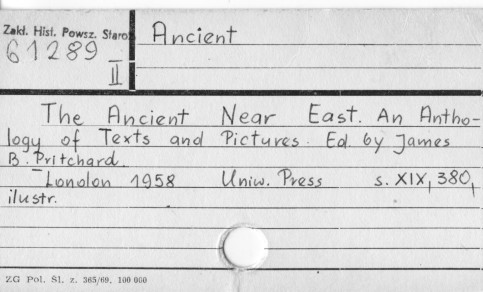 Zakł. Hist. Powsz. Staroż
61289
II
Ancient
The Ancient Near East. An Antho-
logy of Texts and Pictures. Ed. by James
B. Pritchard.
– London 1958 Uniw. Press s. XIX, 380,
ilustr.
ZG Pol. Sl. z. 365/69. 100 000